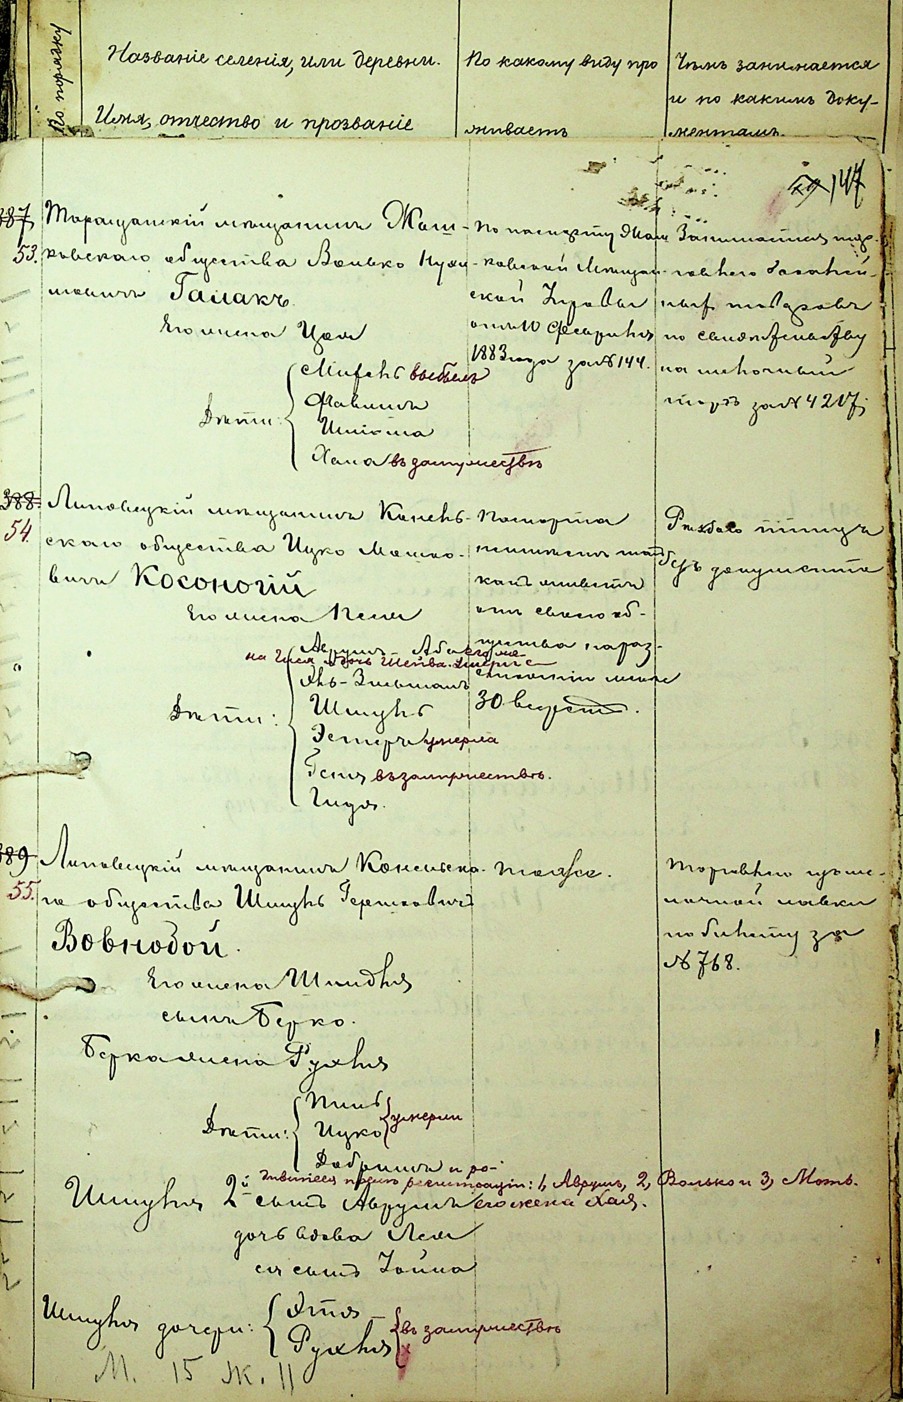 По порядку
Названіе селенія, или деревни.
Имя, отчество и прозваніе
По какому виду про
живаетъ
Чѣмъ занимается
и по какимъ доку-
ментамъ.
147
387
53.
Таращанскій мѣщанинъ Жаш-
ковскаго общества Волько
Галакъ.
Его жена Цря
Дѣти:
выбылъ
Хана въ замужествѣ
По паспорту Жаш
ковской Мѣщан-
ской Управы
отъ 10 февраля
1883 года за № 144.
Занимается тор-
говлею бакалей-
ныхъ товаровъ
по свидѣтельству
на мелочный
торгъ за № 4217;
388.
54.
Липовецкій мѣщанинъ Конель-
скаго общества Ицко Мошко-
вичъ Косоногій
Его жена
Дѣти:
Аврумъ-Аба его же-
на Гися и дочь Шейва.
Янъ-Зильманъ
Шмуль
Эстеръ умерла
Гения въ замужествѣ.
Гидя.
Паспорта
такъ
какъ живетъ
отъ своего об-
щества на раз-
стояніи менѣе
30 верстъ.
Рѣзкою птицъ
безъ документа
389
55.
Липовецкій мѣщанинъ Конельска-
го общества Шмуль Гершковичъ
Вовнобой.
Его жена Шиндля
сынъ Берко.
Берка жена Рухля
Дѣти:
Ицко
умерли
Добришъ и ро-
дившіеся послѣ регистраціи: 1, Аврумъ, 2, Волько и 3, Моть.
Шмуля 2й сынъ Аврумъ его жена Хая.
дочь вдова Лея
ея сынъ Хаима
Шмуля дочери:
Этя
Рухля
въ замужествѣ
тоже.
торговлею изъ ме-
лочной лавки
по билету за
№ 768.
М. 15 Ж. 11